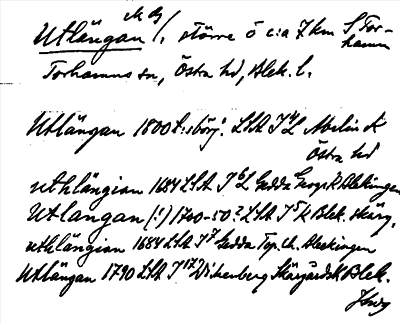 Utlängan /. större ö c:a 7 km S Tor-
hamn
Torhamns sn, Östra hd, Blek. l.
Utlängan 1800 t:s börj. LSA I 4 L Melin K
Östra hd
uthlängian 1684 LSA I 6 L Gedda Geogr K Blekingen
Utlangan (!) 1700-50? LSA I 5 K Blek. skärg.
uthlängian 1684 LSA I 7 Gedda Top. ch. Bleckingen
Utlängan 1790 LSA I 17 Wikenberg Skärgårds K Blek.